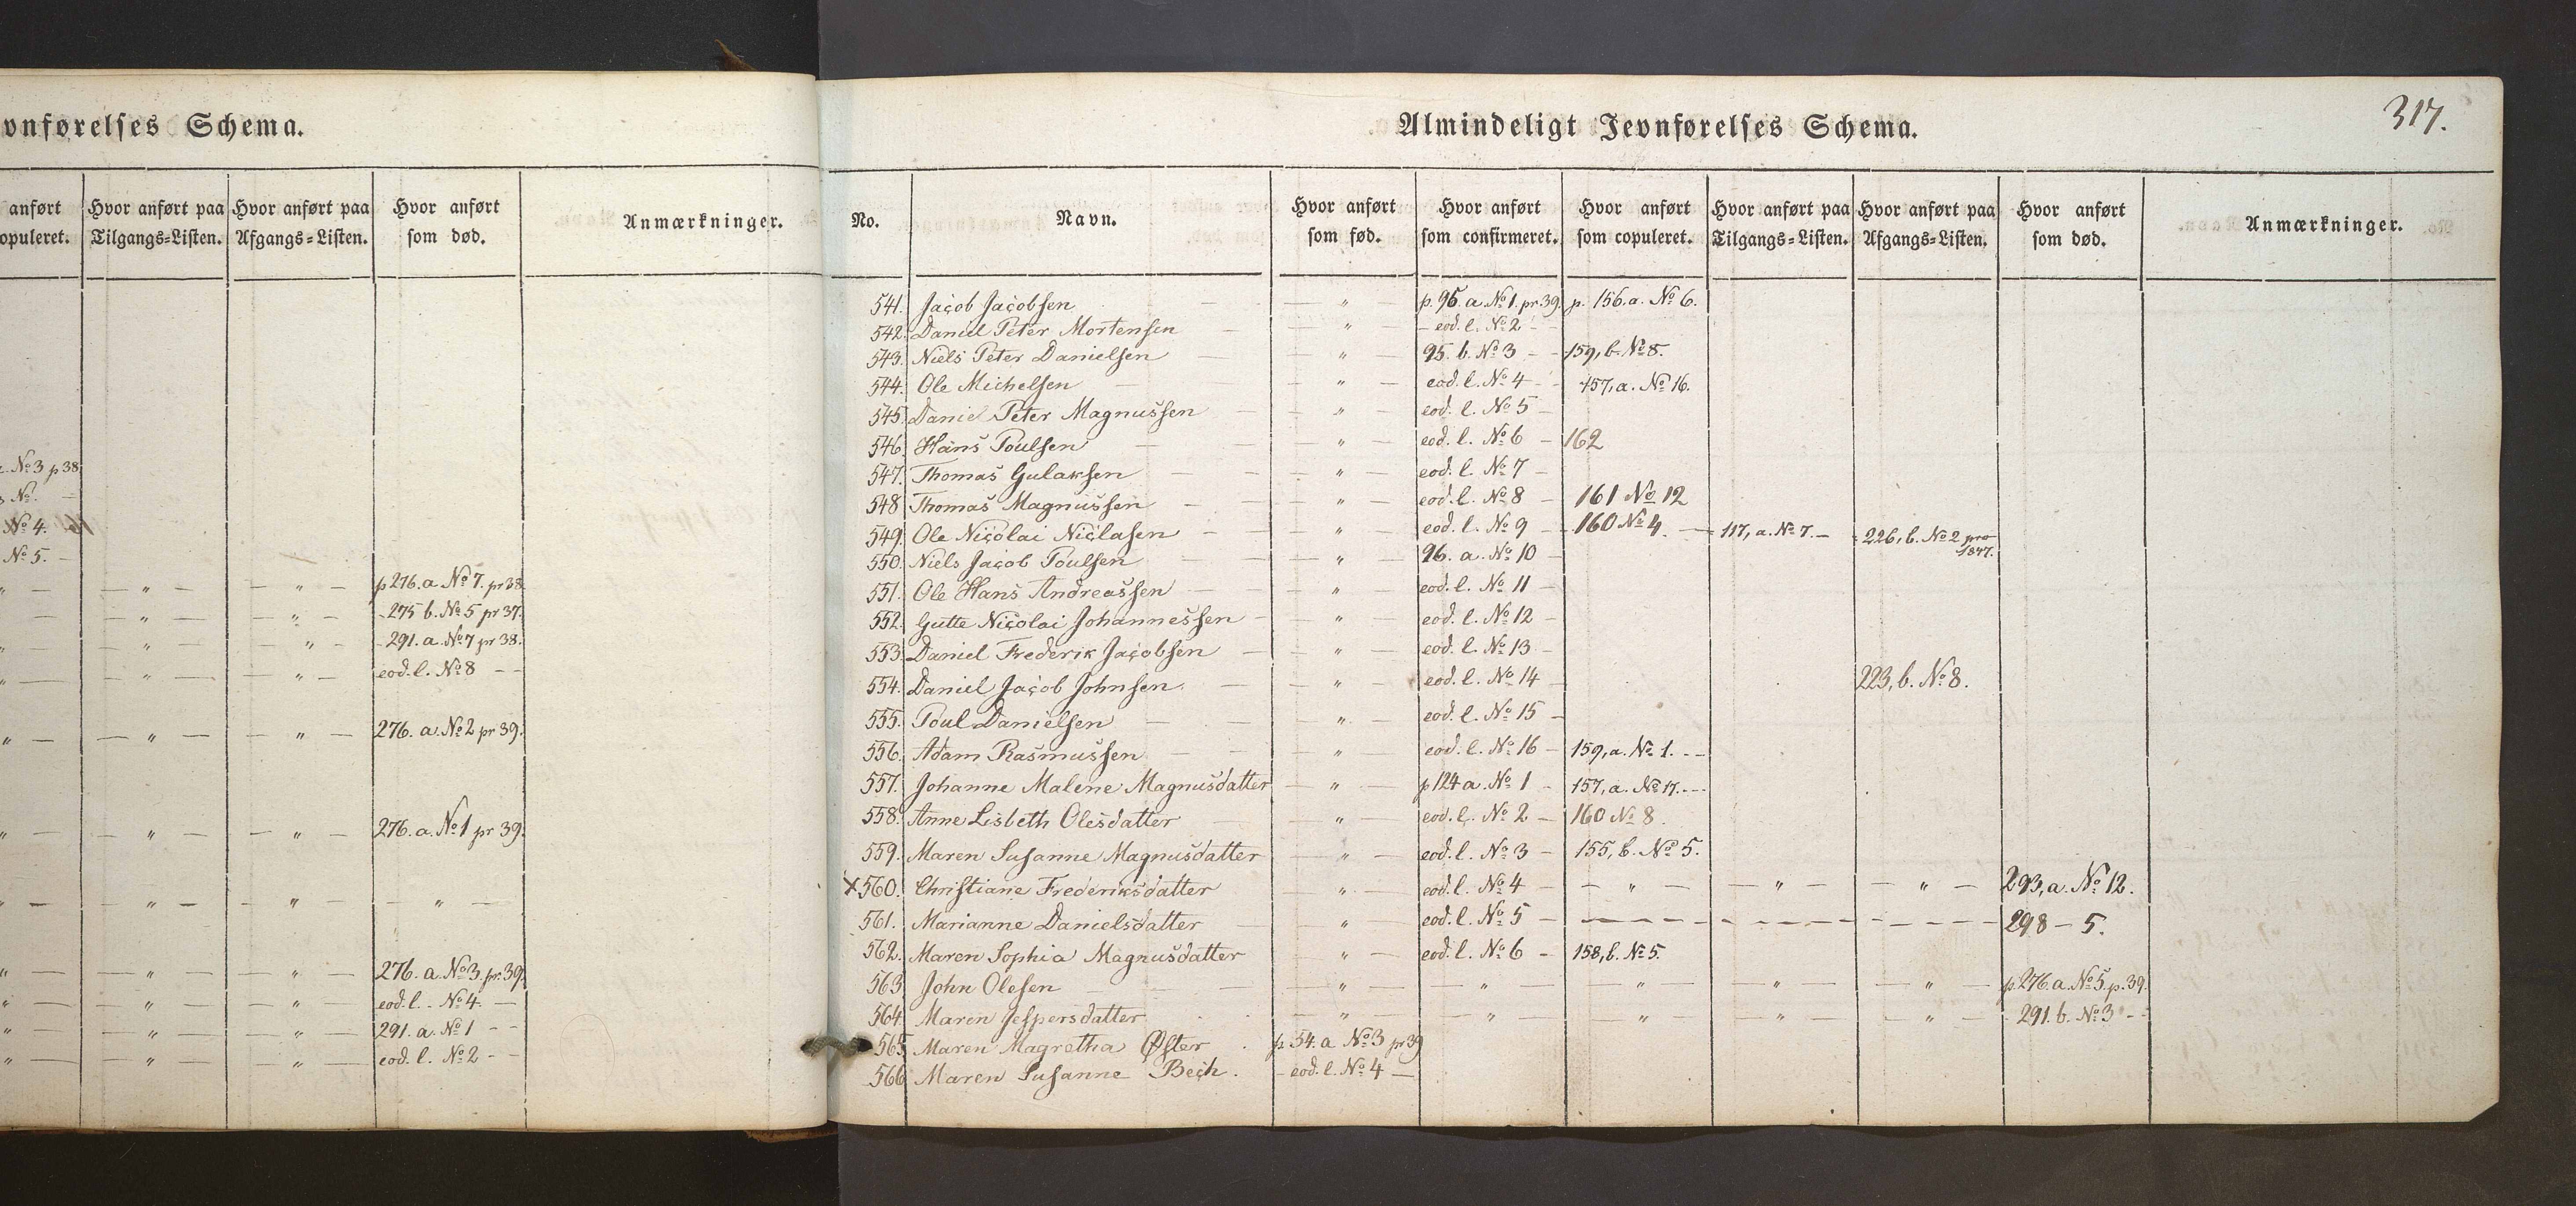 vnførelses Schema.
anført Hvor anført paa Hvor anført paa Hvor anført
opuleret. Tilgangs-Listen. Afgangs-Listen. som død. Anmærkninger.
No 3 p 38
No.
No 4.
No 5. -
" — — " — — " — p 276. a No 7. pr 38.
— — " — — " — - 275 b. No 5 pr 37.
" — — " — — " — - 291. a. No 7 pr 38.
" — — " — — " — eod. l. No 8 - -
" — — " — — " — 276. a. No 2 pr 39.
" — — " — — " — 276. a. No 1 pr 39.
" — — " — — " — — " —
" — — " — — " — 276. a. No 3. pr. 39.
" — — " — — " — eod. l. No 4. —
" — — " — — " — 291. a. No 1 - -
" — — " — — " — eod. l. No 2 - -
Almindeligt Jevnførelses Schema.
317.
No. Navn. Hvor anført som fød. Hvor anført som confirmeret. Hvor anført som copuleret. Hvor anført paa Tilgangs-Listen. Hvor anført paa Afgangs-Listen. Hvor anført som død. Anmærkninger.
541. Jacob Jacobsen — — " — p. 95. a. No 1. pr. 39. p. 156, a. No 6.
542. Daniel Peter Mortensen — — " — - eod. l. No 2 -
543. Niels Peter Danielsen — — " — 95. b. No 3 - - 159, b. No 8.
544. Ole Michelsen — — " — eod. l. No 4 - - 157, a. No 16.
545. Daniel Peter Magnussen — — " — eod. l. No 5 -
546. Hans Poulsen — — " — eod. l. No 6 - 162
547. Thomas Gulaksen — — " — eod. l. No 7 -
548 Thomas Magnussen — — " — eod. l. No 8 - 161 No 12
549. Ole Nicolai Niclasen — — " — eod. l. No 9 - 160 No 4. — 117, a. No 7. — 226, b. No 2 pro 1847.
550. Niels Jacob Poulsen — — " — 96. a. No 10 -
551. Ole Hans Andreassen — — " — eod. l. No 11 -
552. Gutte Nicolai Johannessen — — " — eod. l. No 12 -
553. Daniel Frederik Jacobsen — — " — eod. l. No 13 -
554. Daniel Jacob Johnsen — — " — eod. l. No 14 223, b. No 8.
555. Poul Danielsen — — " — eod. l. No 15 -
556. Adam Rasmussen — — " — eod. l. No 16 - 159, a. No 1. - -
557. Johanne Malene Magnusdatter — " — p 124 a. No 1 - 157, a. No 17. - -
558. Anne Lisbeth Olesdatter — " — eod. l. No 2 - 160 No 8.
559. Maren Susanne Magnusdatter — " — eod. l. No 3 - 155, b. No 5.
X 560. Christiane Frederiksdatter — " — eod. l. No 4 - — " — — " — — " — 293, a. No 12.
561. Marianne Danielsdatter — " — eod. l. No 5 - — — — — 298 - 5.
562. Maren Sophia Magnusdatter — " — eod. l. No 6 - 158, b. No 5.
563 John Olesen — — " — — " — — " — — " — — " — p. 276. a. No 5. p. 39.
564. Maren Jespersdatter — " — — " — — " — — " — — " — 291. b. No 3 - -
565 Maren Magretha Øster . p. 54. a No 3 pr 39
566 Maren Susanne Bech . - eod. l. No 4 —